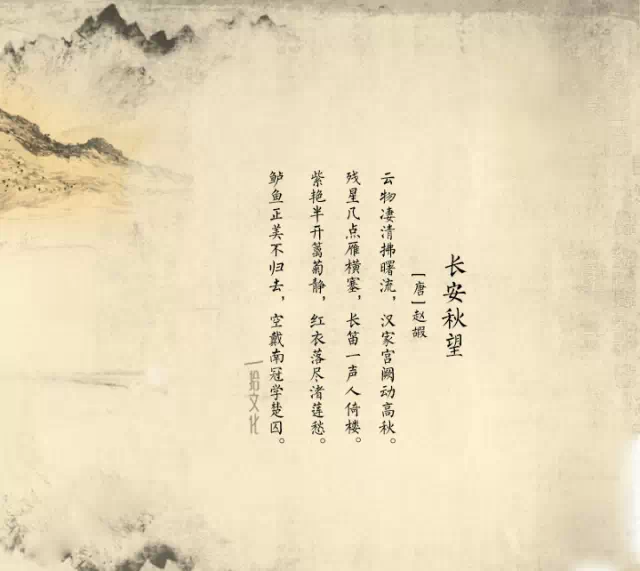 长安秋望
[唐]赵嘏
云物凄清拂曙流，汉家宫阙动高秋。
残星几点雁横塞，长笛一声人倚楼。
紫艳半开篱菊静，红衣落尽渚莲愁。
鲈鱼正美不归去，空戴南冠学楚囚。
一拾文化